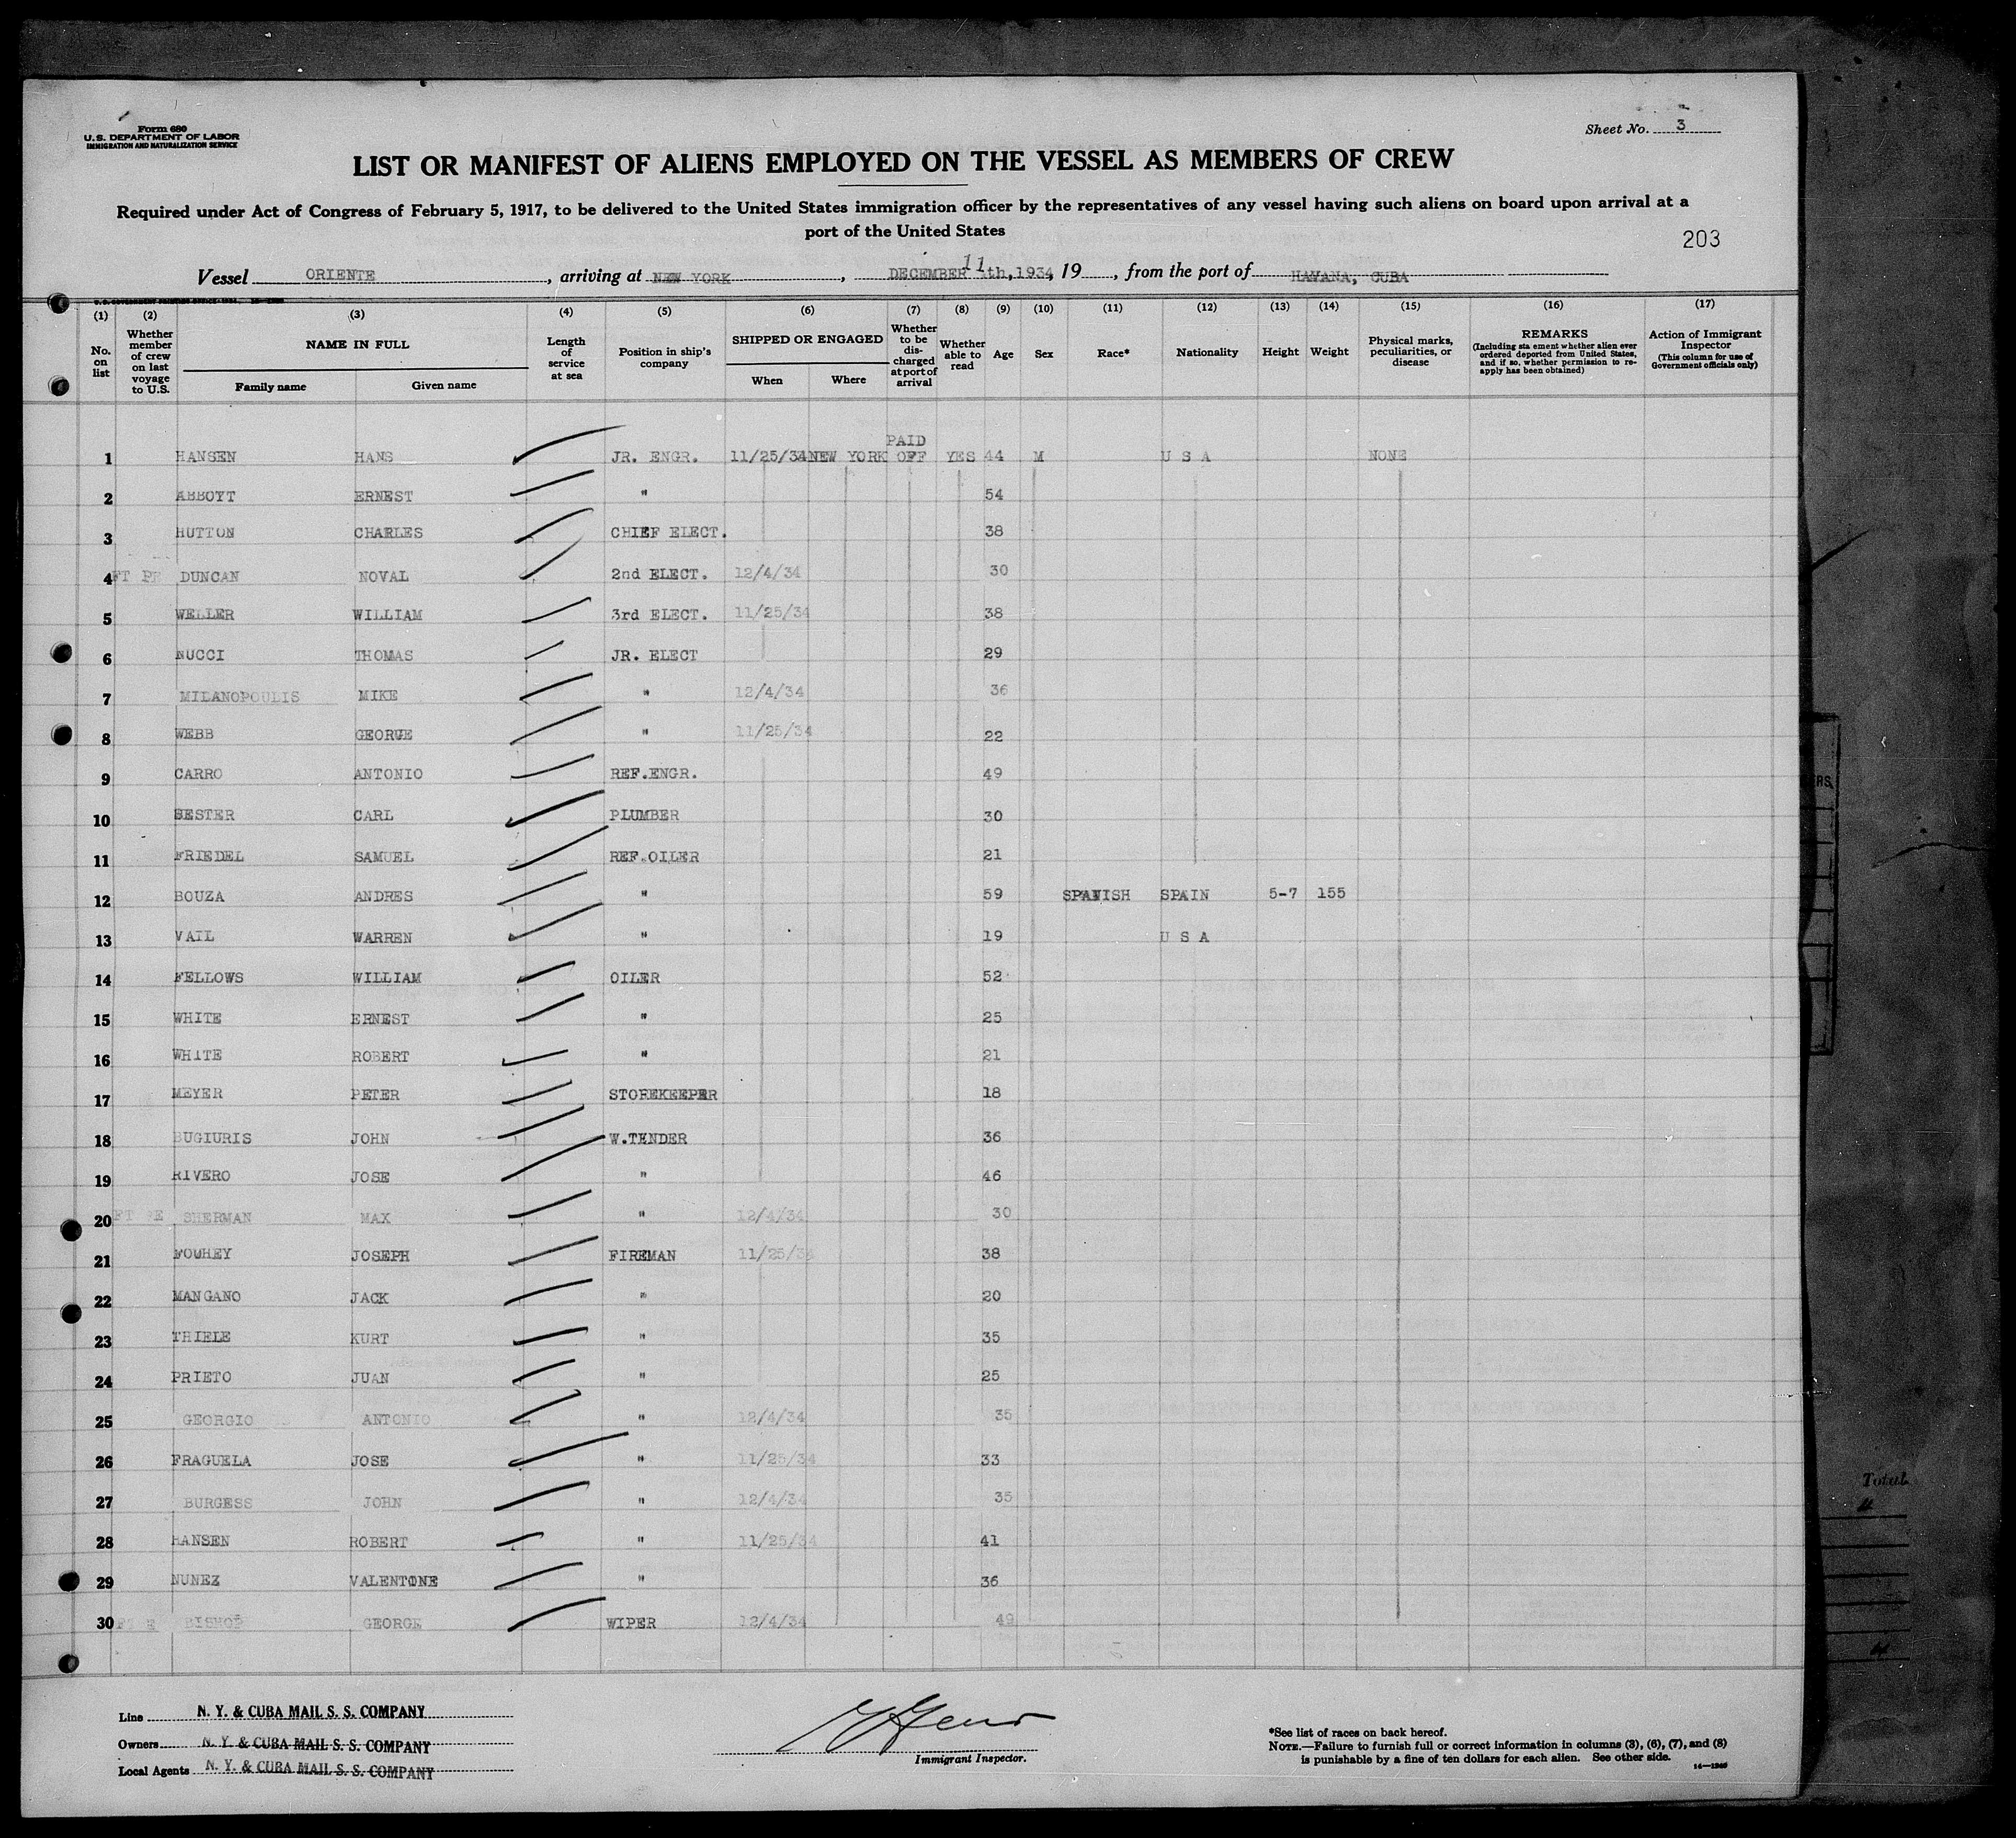 Form 680
U.S. DEPARTMENT OF LABOR
IMMIGRATION AND NATURALIZATION SERVICE
Sheet No. 3
LIST OR MANIFEST OF ALIENS EMPLOYED ON THE VESSEL AS MEMBERS OF CREW
Required under Act of Congress of February 5, 1917, to be delivered to the United States immigration officer by the representatives of any vessel having such aliens on board upon arrival at a
port of the United States
203
Vessel ORIENTE, arriving at NEW YORK, DECEMBER 11th, 1934, 19, from the port of HAVANA, CUBA
(1) (2) (3) (4) (5) (6) (7) (8) (9) (10) (11) (12) (13) (14) (15) (16) (17)
No. on list
Whether member of crew on last voyage to U.S.
NAME IN FULL
Family name Given name
Length of service at sea
Position in ship's company
SHIPPED OR ENGAGED
When Where
Whether to be discharged at port of arrival
Whether able to read
Age
Sex
Race*
Nationality
Height
Weight
Physical marks, peculiarities, or disease
REMARKS
(Including sta ement whether alien ever ordered deported from United States, and if so, whether permission to reapply has been obtained)
Action of Immigrant Inspector
(This column for use of Government officials only)
PAID
1 HANSEN HANS JR. ENGR. 11/25/34 NEW YORK OFF YES 44 M U S A NONE
2 ABBOYT ERNEST " 54
3 HUTTON CHARLES CHIEF ELECT. 38
4 DUNCAN NOVAL 2nd ELECT. 12/4/34 30
5 WELLER WILLIAM 3rd ELECT. 11/25/34 38
6 NUCCI THOMAS JR. ELECT 29
7 MILANOPOULIS MIKE " 12/4/34 36
8 WEBB GEORGE " 11/25/34 22
9 CARRO ANTONIO REF.ENGR. 49
10 HESTER CARL PLUMBER 30
11 FRIEDEL SAMUEL REF.OILER 21
12 BOUZA ANDRES " 59 SPANISH SPAIN 5-7 155
13 VAIL WARREN " 19 U S A
14 FELLOWS WILLIAM OILER 52
15 WHITE ERNEST " 25
16 WHITE ROBERT " 21
17 MEYER PETER STOREKEEPER 18
18 BUGIURIS JOHN W.TENDER 36
19 RIVERO JOSE " 46
20 SHERMAN MAX " 12/4/34 30
21 FOUHEY JOSEPH FIREMAN 11/25/34 38
22 MANGANO JACK " 20
23 THIELE KURT " 35
24 PRIETO JUAN " 25
25 GEORGIO ANTONIO " 12/4/34 35
26 FRAGUELA JOSE " 11/25/34 33
27 BURGESS JOHN " 12/4/34 35
28 HANSEN ROBERT " 11/25/34 41
29 NUNEZ VALENTONE " 36
30 BISHOP GEORGE WIPER 12/4/34 49
Line N. Y. & CUBA MAIL S. S. COMPANY
Owners N. Y. & CUBA MAIL S. S. COMPANY
Local Agents N. Y. & CUBA MAIL S. S. COMPANY
Immigrant Inspector.
*See list of races on back hereof.
NOTE.—Failure to furnish full or correct information in columns (3), (6), (7), and (8)
is punishable by a fine of ten dollars for each alien. See other side.
Total